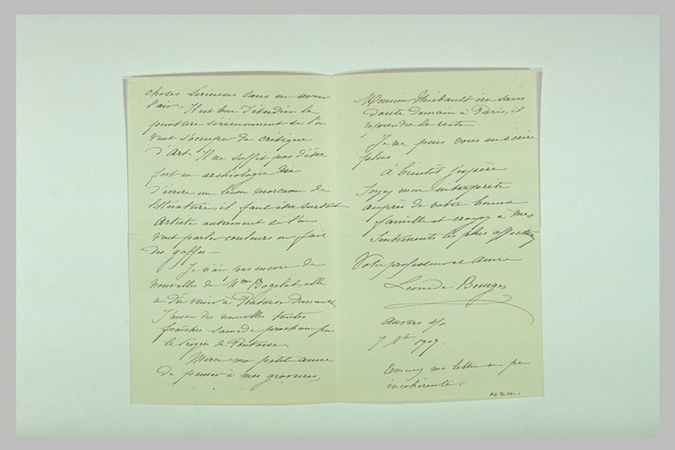 choses sérieuses sans en avoir
l'air. Il est bon d'étudier la
peinture sérieusement si l'on
veut s'occuper de critique
d'Art. Il ne suffit pas d'être
fort en archéologie
d'écrire un bon morceau de
littérature, il faut être surtout
Artiste autrement si l'on
veut parler couleurs on fait
des gaffes.
Je n'ai pas encore de
nouvelle de Mme elle
a dû venir à Pontoise dimanche
J'aurai des nouvelles toutes
fraîches samedi prochain par
de Pontoise.
Merci ma petite amie
de penser à mes gravures,
Monsieur Thiébault ira sans
doute demain à Paris, il
la carte
Je ne puis vous en écrire
plus
à bientôt j'espère
Soyez mon interprète
auprès de votre bonne
famille et croyez à mes
sentiments les plus affectueux
Votre professeur et amie
Léonide Bourges
Auvers s/o
7 1909.
Excusez ma lettre un peu
incohérente.